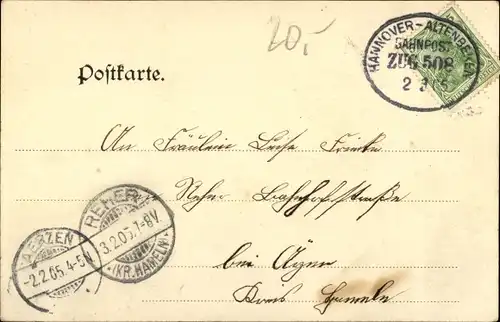 20,-
HANNOVER - ALTENBEKEN
BAHNPOST.
ZUG 508
2 2 05
Postkarte.
An Fräulein Luise Fricke
Reher Bahnhofstraße
bei Aerzen
Kreis Hameln
REHER
3.2.05.7-8V.
(KR. HAMELN)
AERZEN
-2.2.05.4-5N